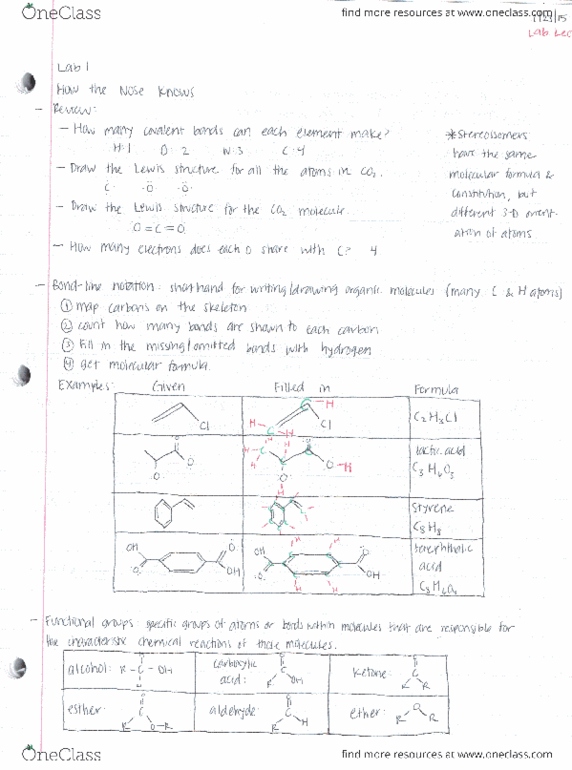 OneClass
find more resources at www.oneclass.com
Lab Lec
Lab 1
How the Nose Knows
- Review:
- How many covalent bonds can each element make?
H:1 O:2 N:3 C:4
- Draw the Lewis structure for all the atoms in CO2.
C O O
- Draw the Lewis structure for the CO2 molecule.
O=C=O
- How many electrons does each O share with C? 4
*Stereoisomers
have the same
molecular formula &
constitution, but
different 3-D orient-
ation of atoms
- Bond-line notation: shorthand for writing/drawing organic molecules (many C & H atoms)
① map carbons on the skeleton
② count how many bonds are shown to each carbon
③ fill in the missing/omitted bonds with hydrogen
④ get molecular formula.
Examples: Given Filled in Formula
Cl
H
H C H
Cl
C2H3Cl
O
O
O
H
H
H
O
O-H
O
H
lactic acid
C3H6O3
styrene
C8H8
OH
O
O
OH
H
H
OH
O
O
OH
H
H
terephthalic
acid
C8H6O4
- Functional groups: specific groups of atoms or bonds within molecules that are responsible for
the characteristic chemical reactions of those molecules.
alcohol: R-C-OH
carboxylic
acid: O C R OH
ketone: O C R R
esther: O C R O-R
aldehyde: O C R H
ether: O R R
OneClass
find more resources at www.oneclass.com